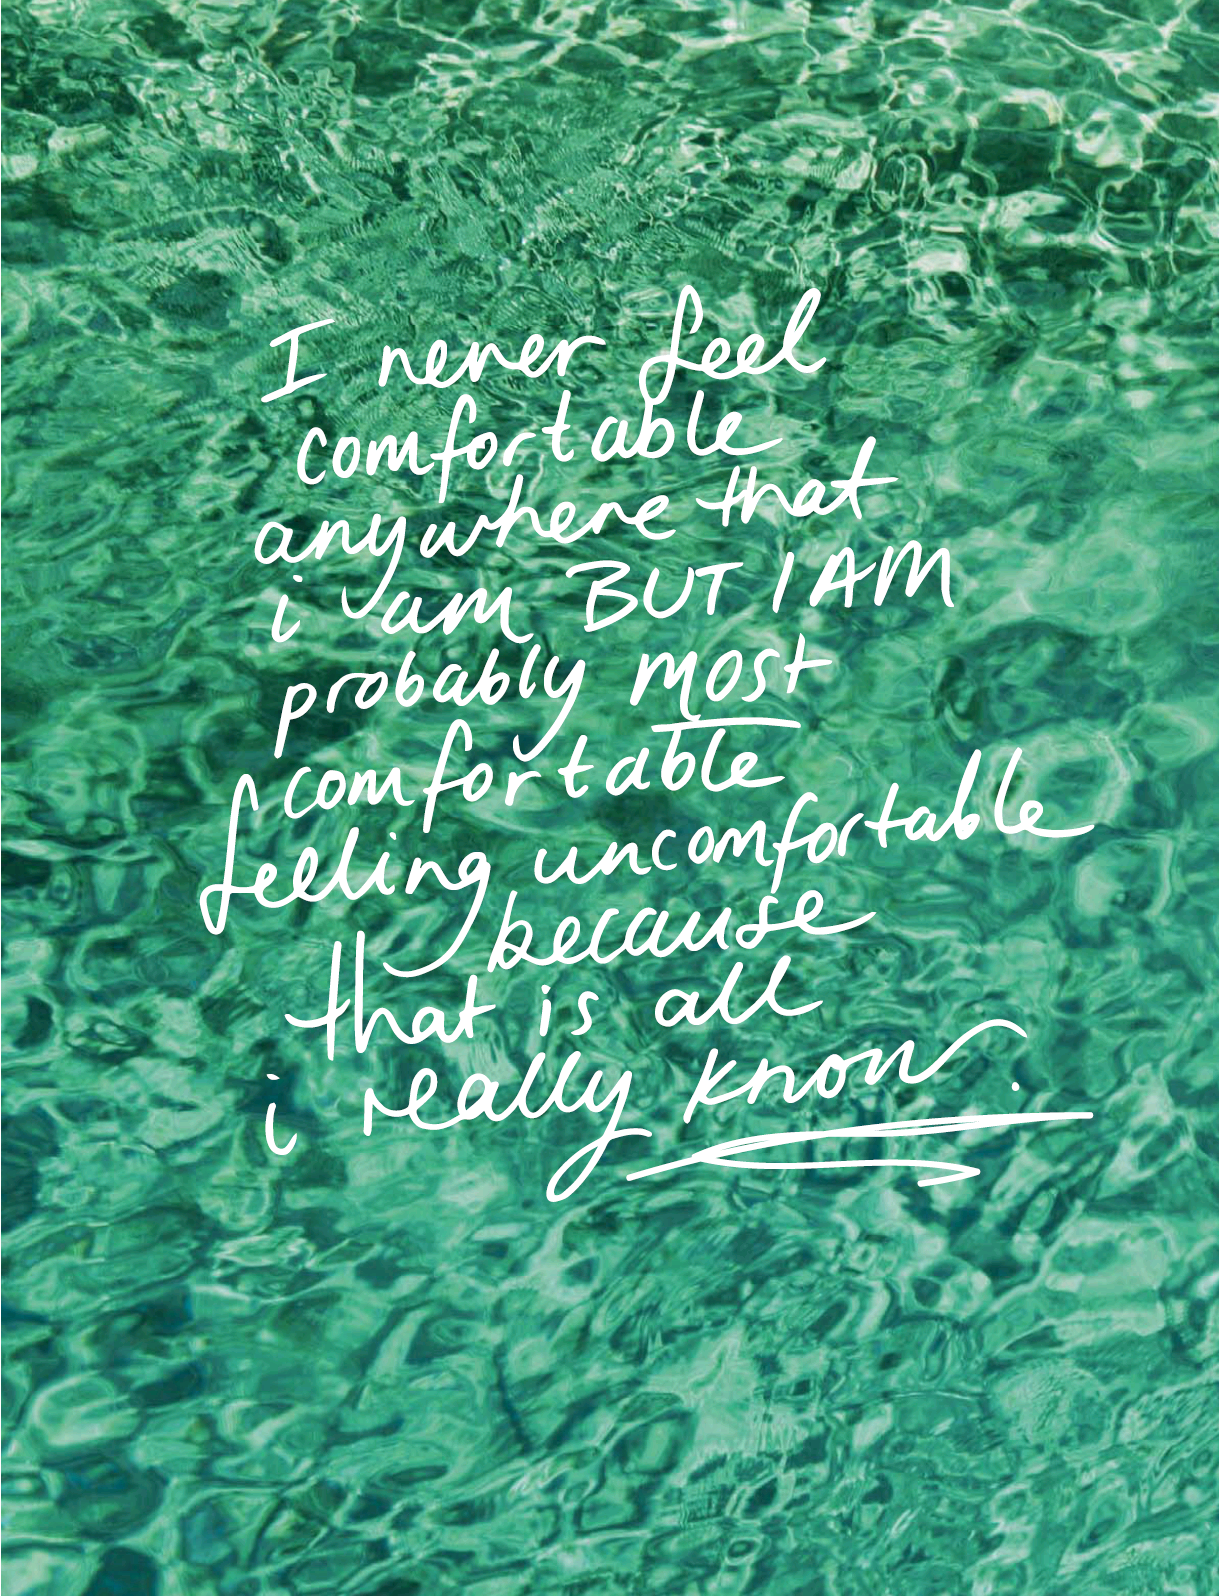 I never feel
comfortable
anywhere that
i am BUT I AM
probably most
comfortable
feeling uncomfortable
because
that is all
i really know.